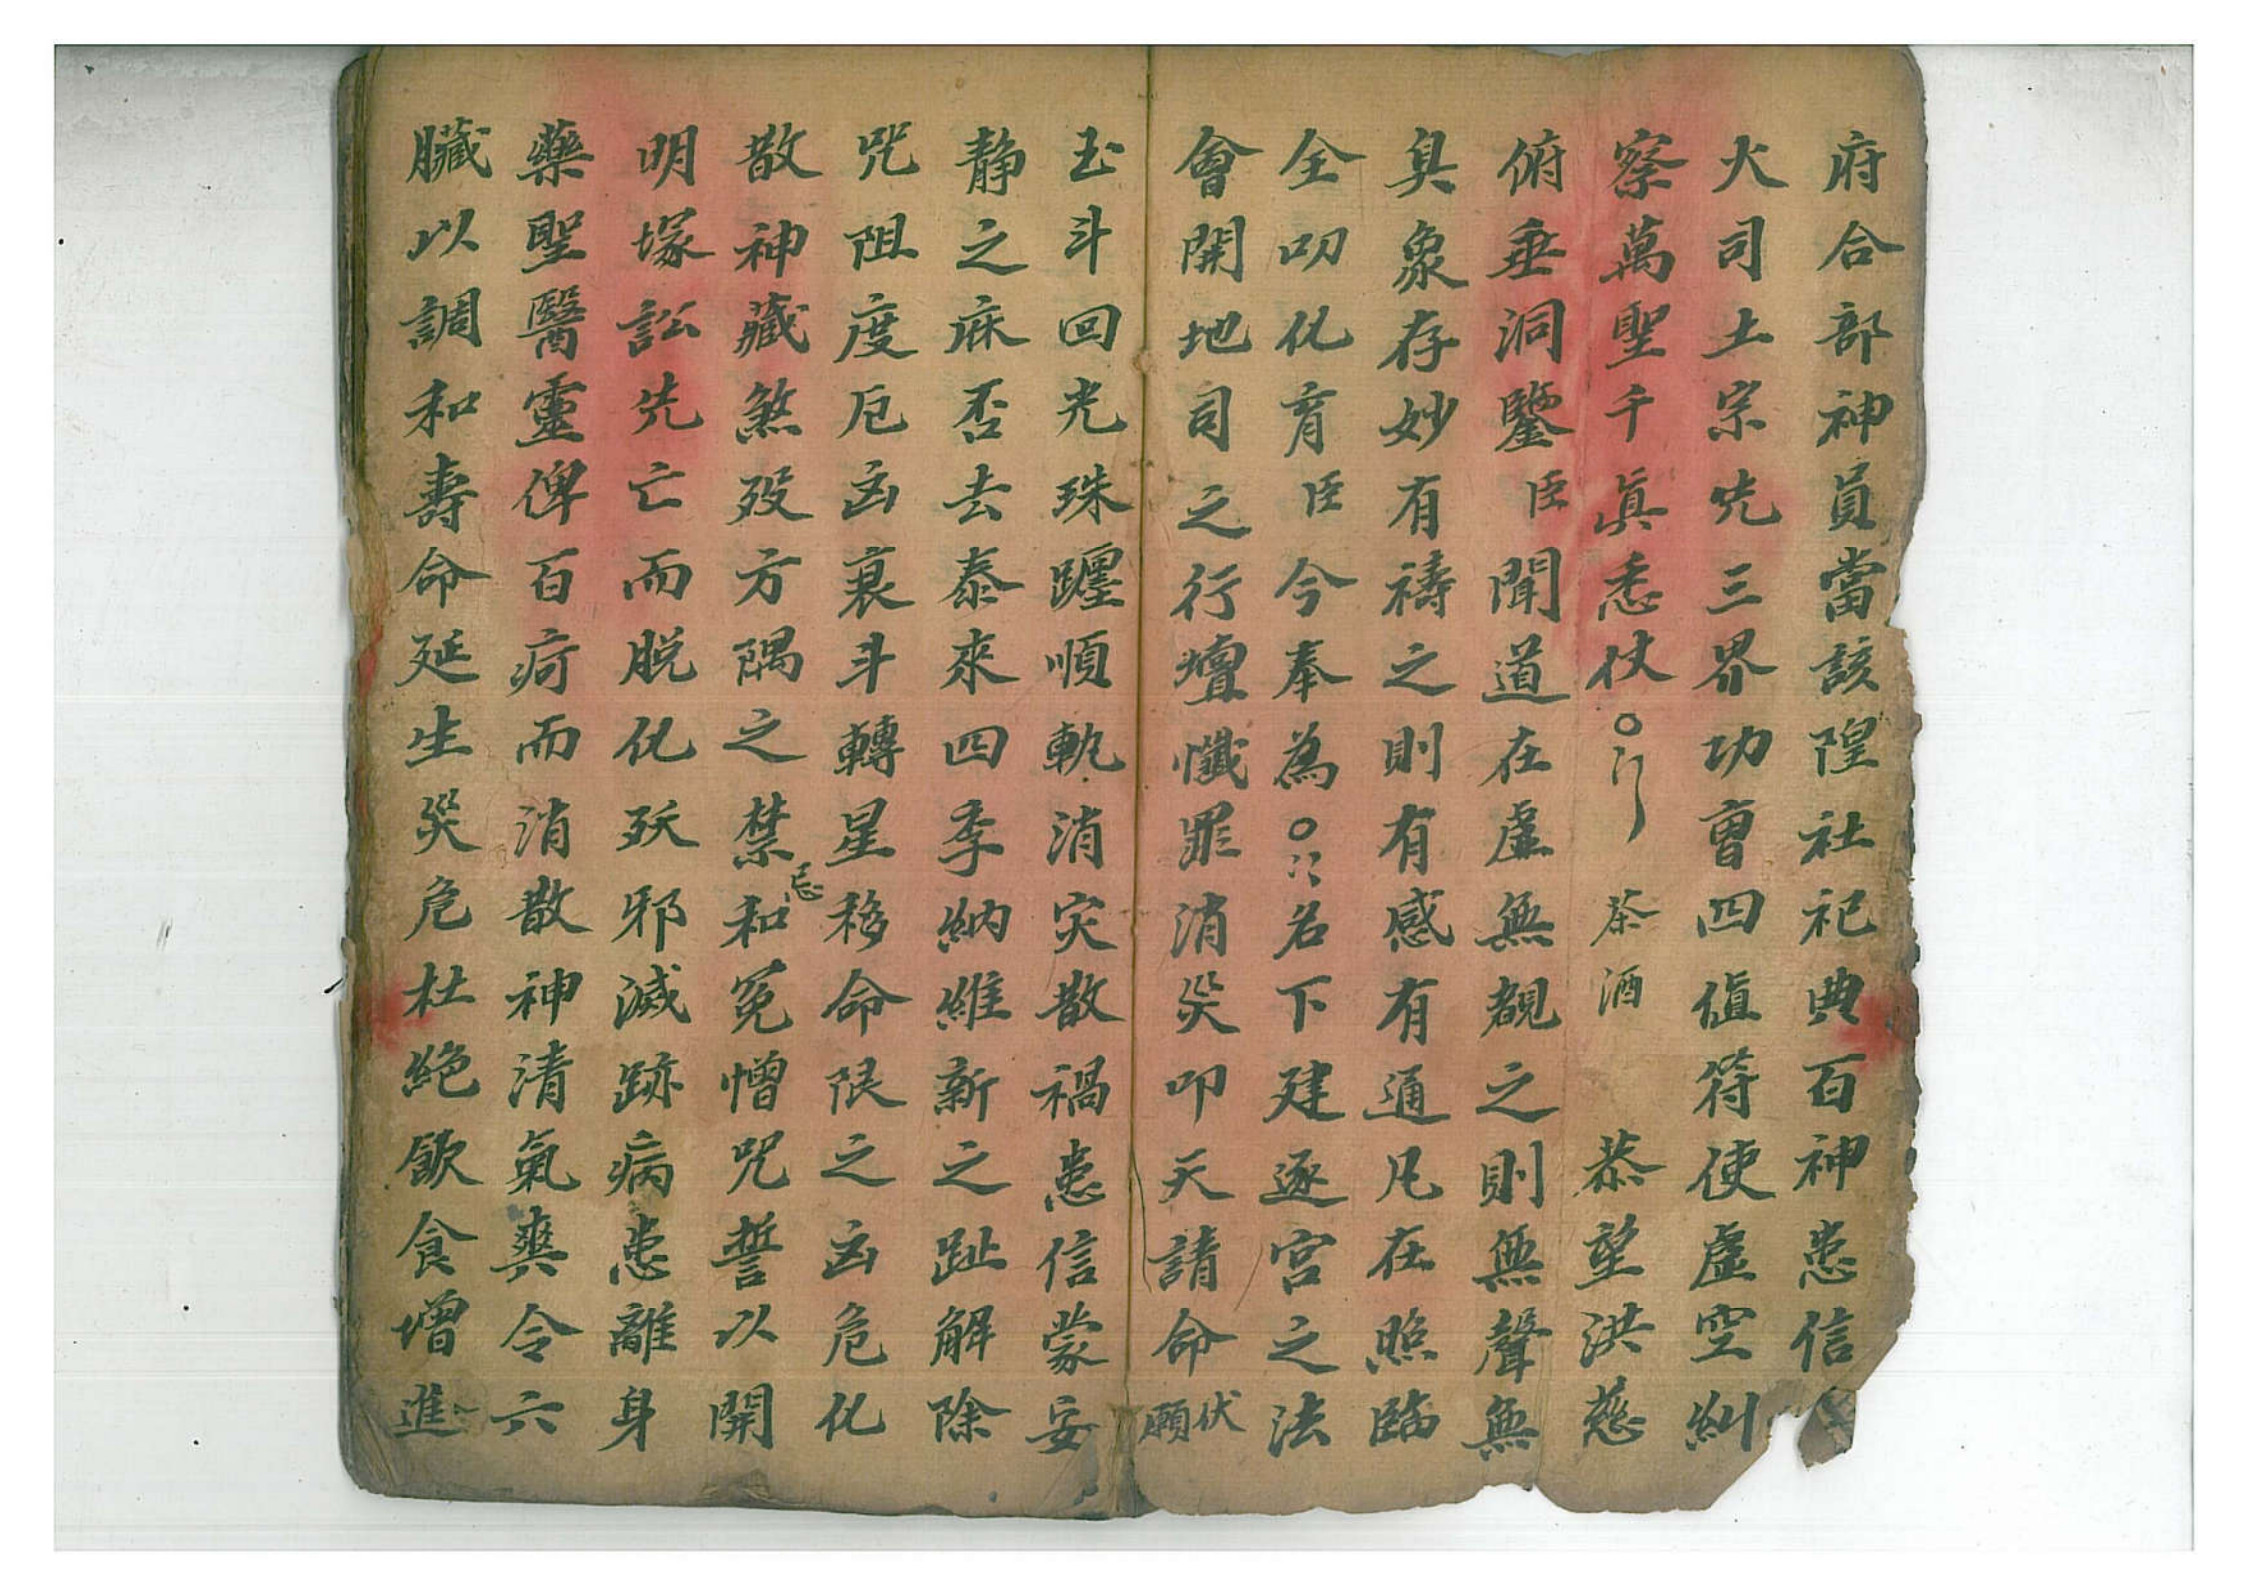 府合部神員當該隍社祀典百神患信
火司土宗先三界功曹四值符使虛空糾
察萬聖千眞悉仗○ 茶酒 恭望洪慈
俯垂洞鑒臣聞道在虛無覩之則無聲無
臭象存妙有禱之則有感有通凡在照臨
全叨化育臣今奉為○名下建逐宮之法
會開地司之行壇懺罪消災叩天請命伏願
玉斗回光珠躔順軌消灾散禍患信蒙安
静之庥否去泰來四季納維新之趾解除
咒阻度厄凶衰斗轉星移命限之凶危化
散神藏煞歿方隅之禁忌和冤憎咒誓以開
明塚訟先亡而脱化殀邪滅跡病患離身
藥聖醫靈俾百疴而消散神清氣爽令六
臟以調和壽命延生災危杜絕飲食增進